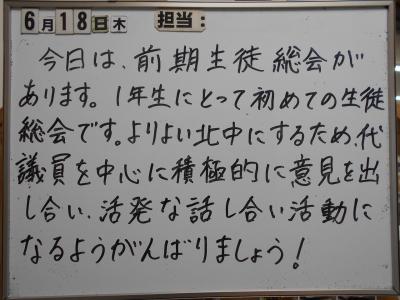 6月18日木 担当:
今日は、前期生徒総会が
あります。1年生にとって初めての生徒
総会です。よりよい北中にするため、代
議員を中心に積極的に意見を出
し合い、活発な話し合い活動に
なるようがんばりましょう!